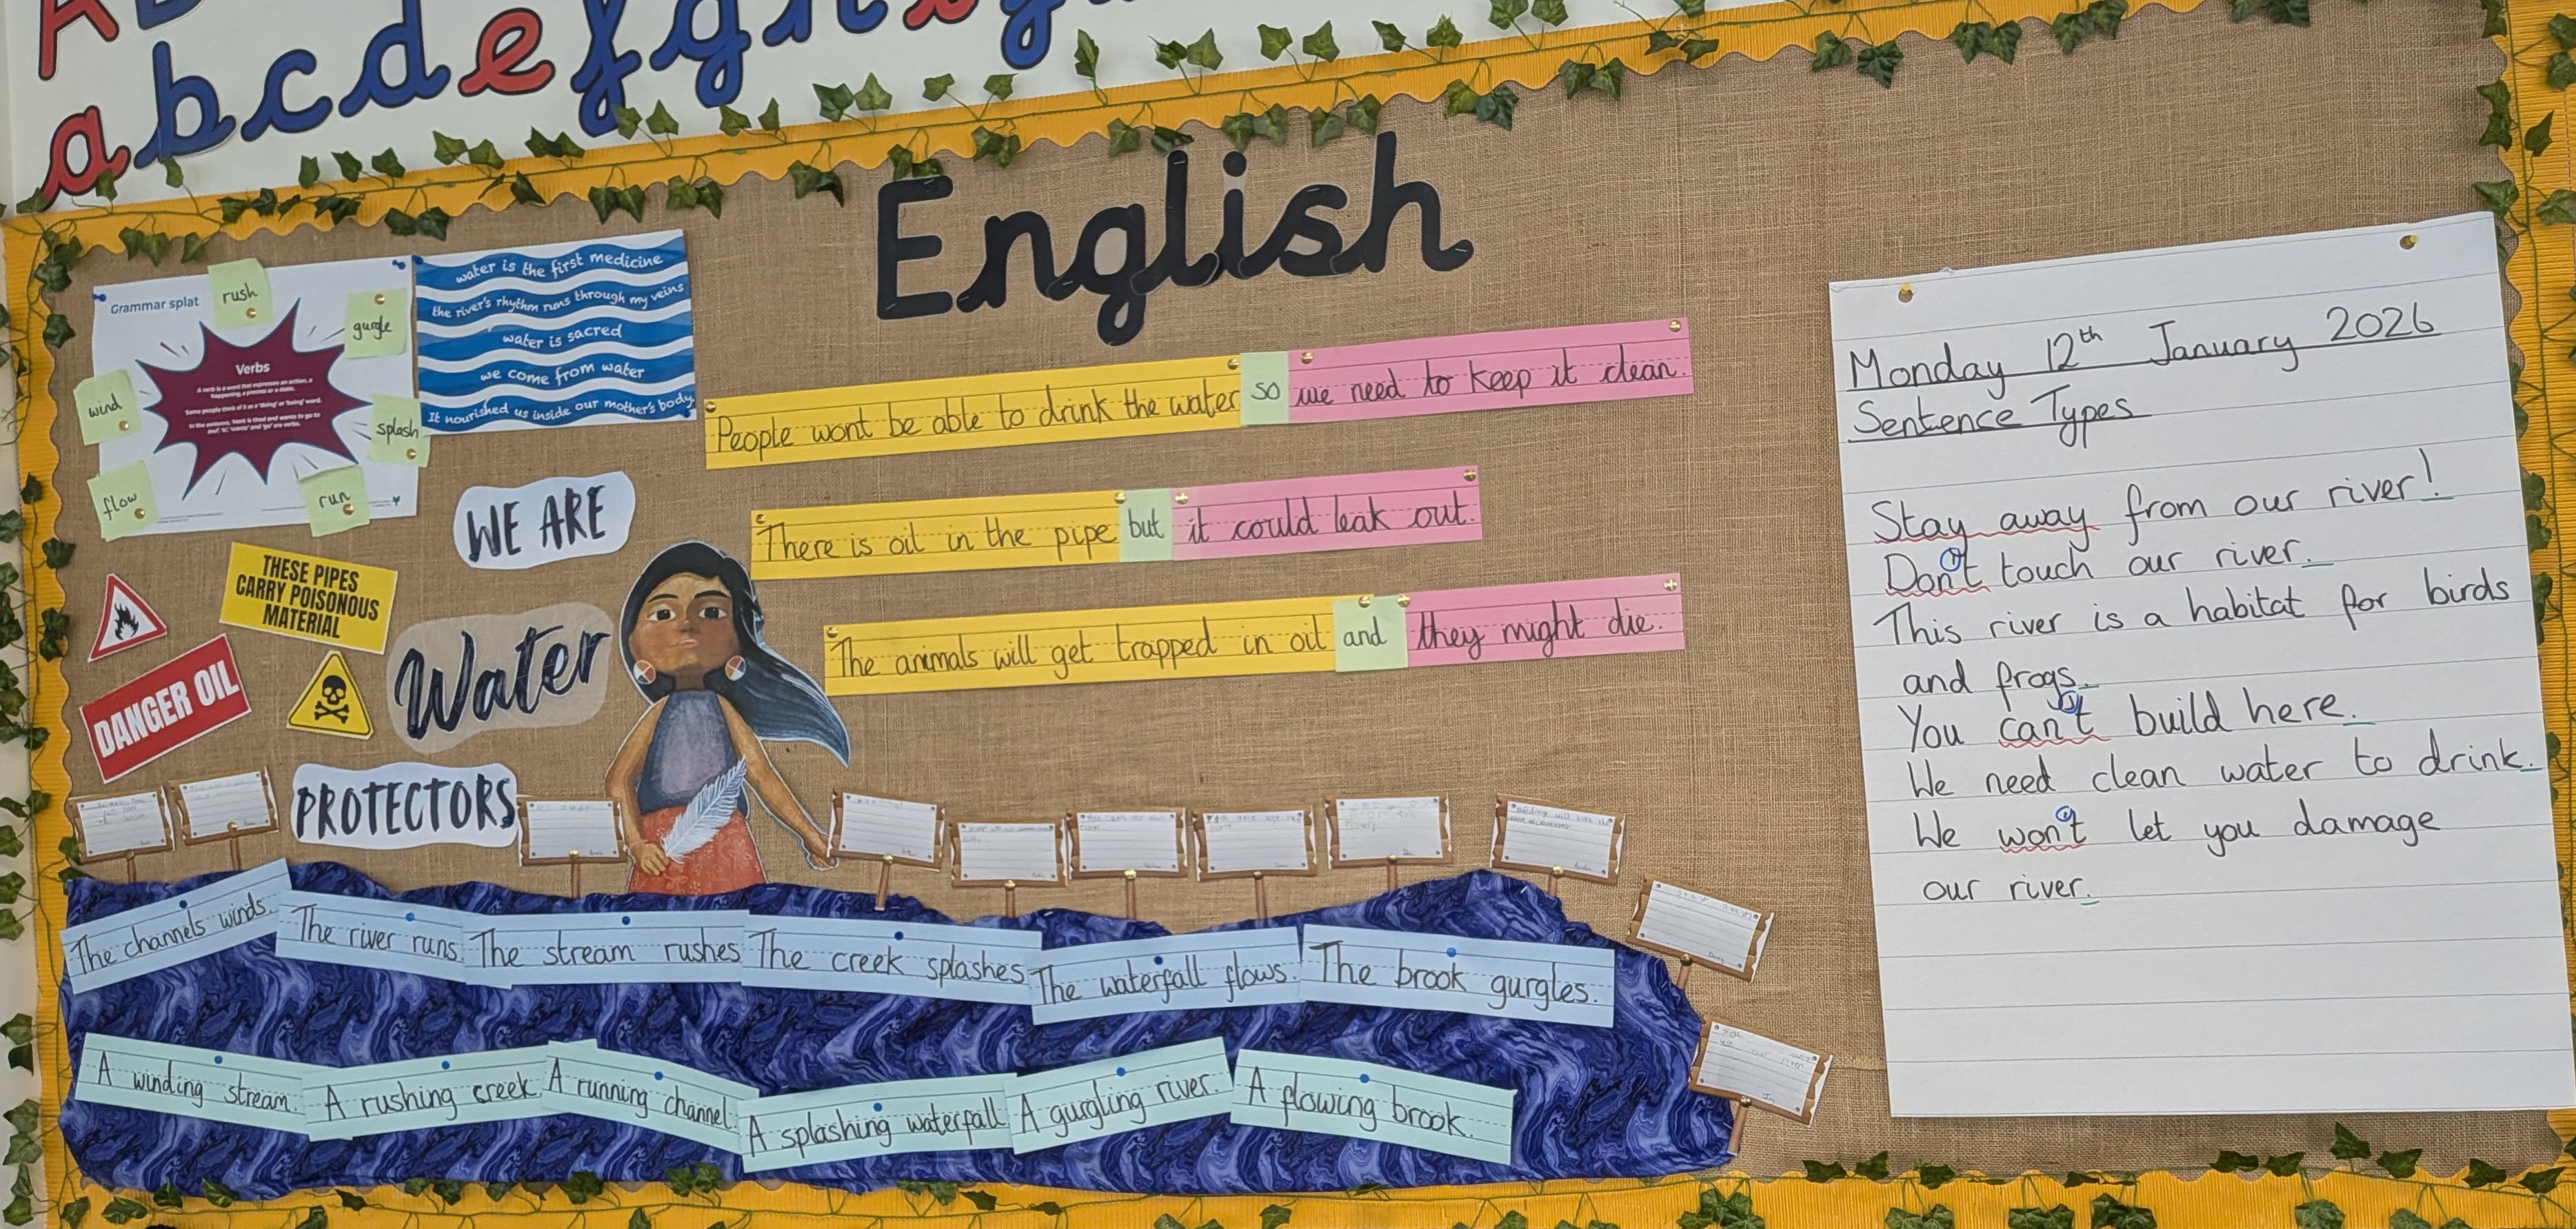 A B
a b c d e f g h
English
Grammar splat
rush
gurgle
wind
splash
flow
run
Verbs
A verb is a word that expresses an action, a
happening, a process or a state.
water is the first medicine
the river's rhythm runs through my veins
water is sacred
we come from water
It nourished us inside our mother's body
People wont be able to drink the water so we need to keep it clean.
There is oil in the pipe but it could leak out.
The animals will get trapped in oil and they might die.
WE ARE
Water
PROTECTORS
THESE PIPES
CARRY POISONOUS
MATERIAL
DANGER OIL
The channels winds.
The river runs.
The stream rushes
The creek splashes
The waterfall flows.
The brook gurgles.
A winding stream.
A rushing creek.
A running channel.
A splashing waterfall
A gurgling river.
A flowing brook.
Monday 12th January 2026
Sentence Types
Stay away from our river!
Don't touch our river.
This river is a habitat for birds
and frogs.
You can't build here.
We need clean water to drink.
We won't let you damage
our river.